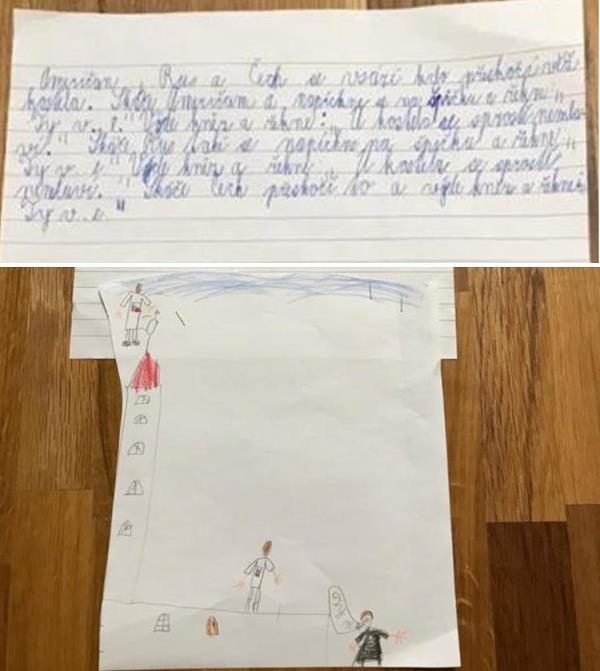 Američan, Rus a Čech se vsází kdo přeskočí věž
kostela. Skáče Američan a napíchne se na špičku a řekne „
Ty v. e." Vyjde kněz a řekne: „U kostela se sprostě nemlu-
ví." Skáče Rus také se napíchne na špičku a řekne „
Ty v. e." Vyjde kněz a řekne „U kostela se sprostě
nemluví." Skáče Čech přeskočí to a vyjde kněz a řekne:
„Ty v. e."